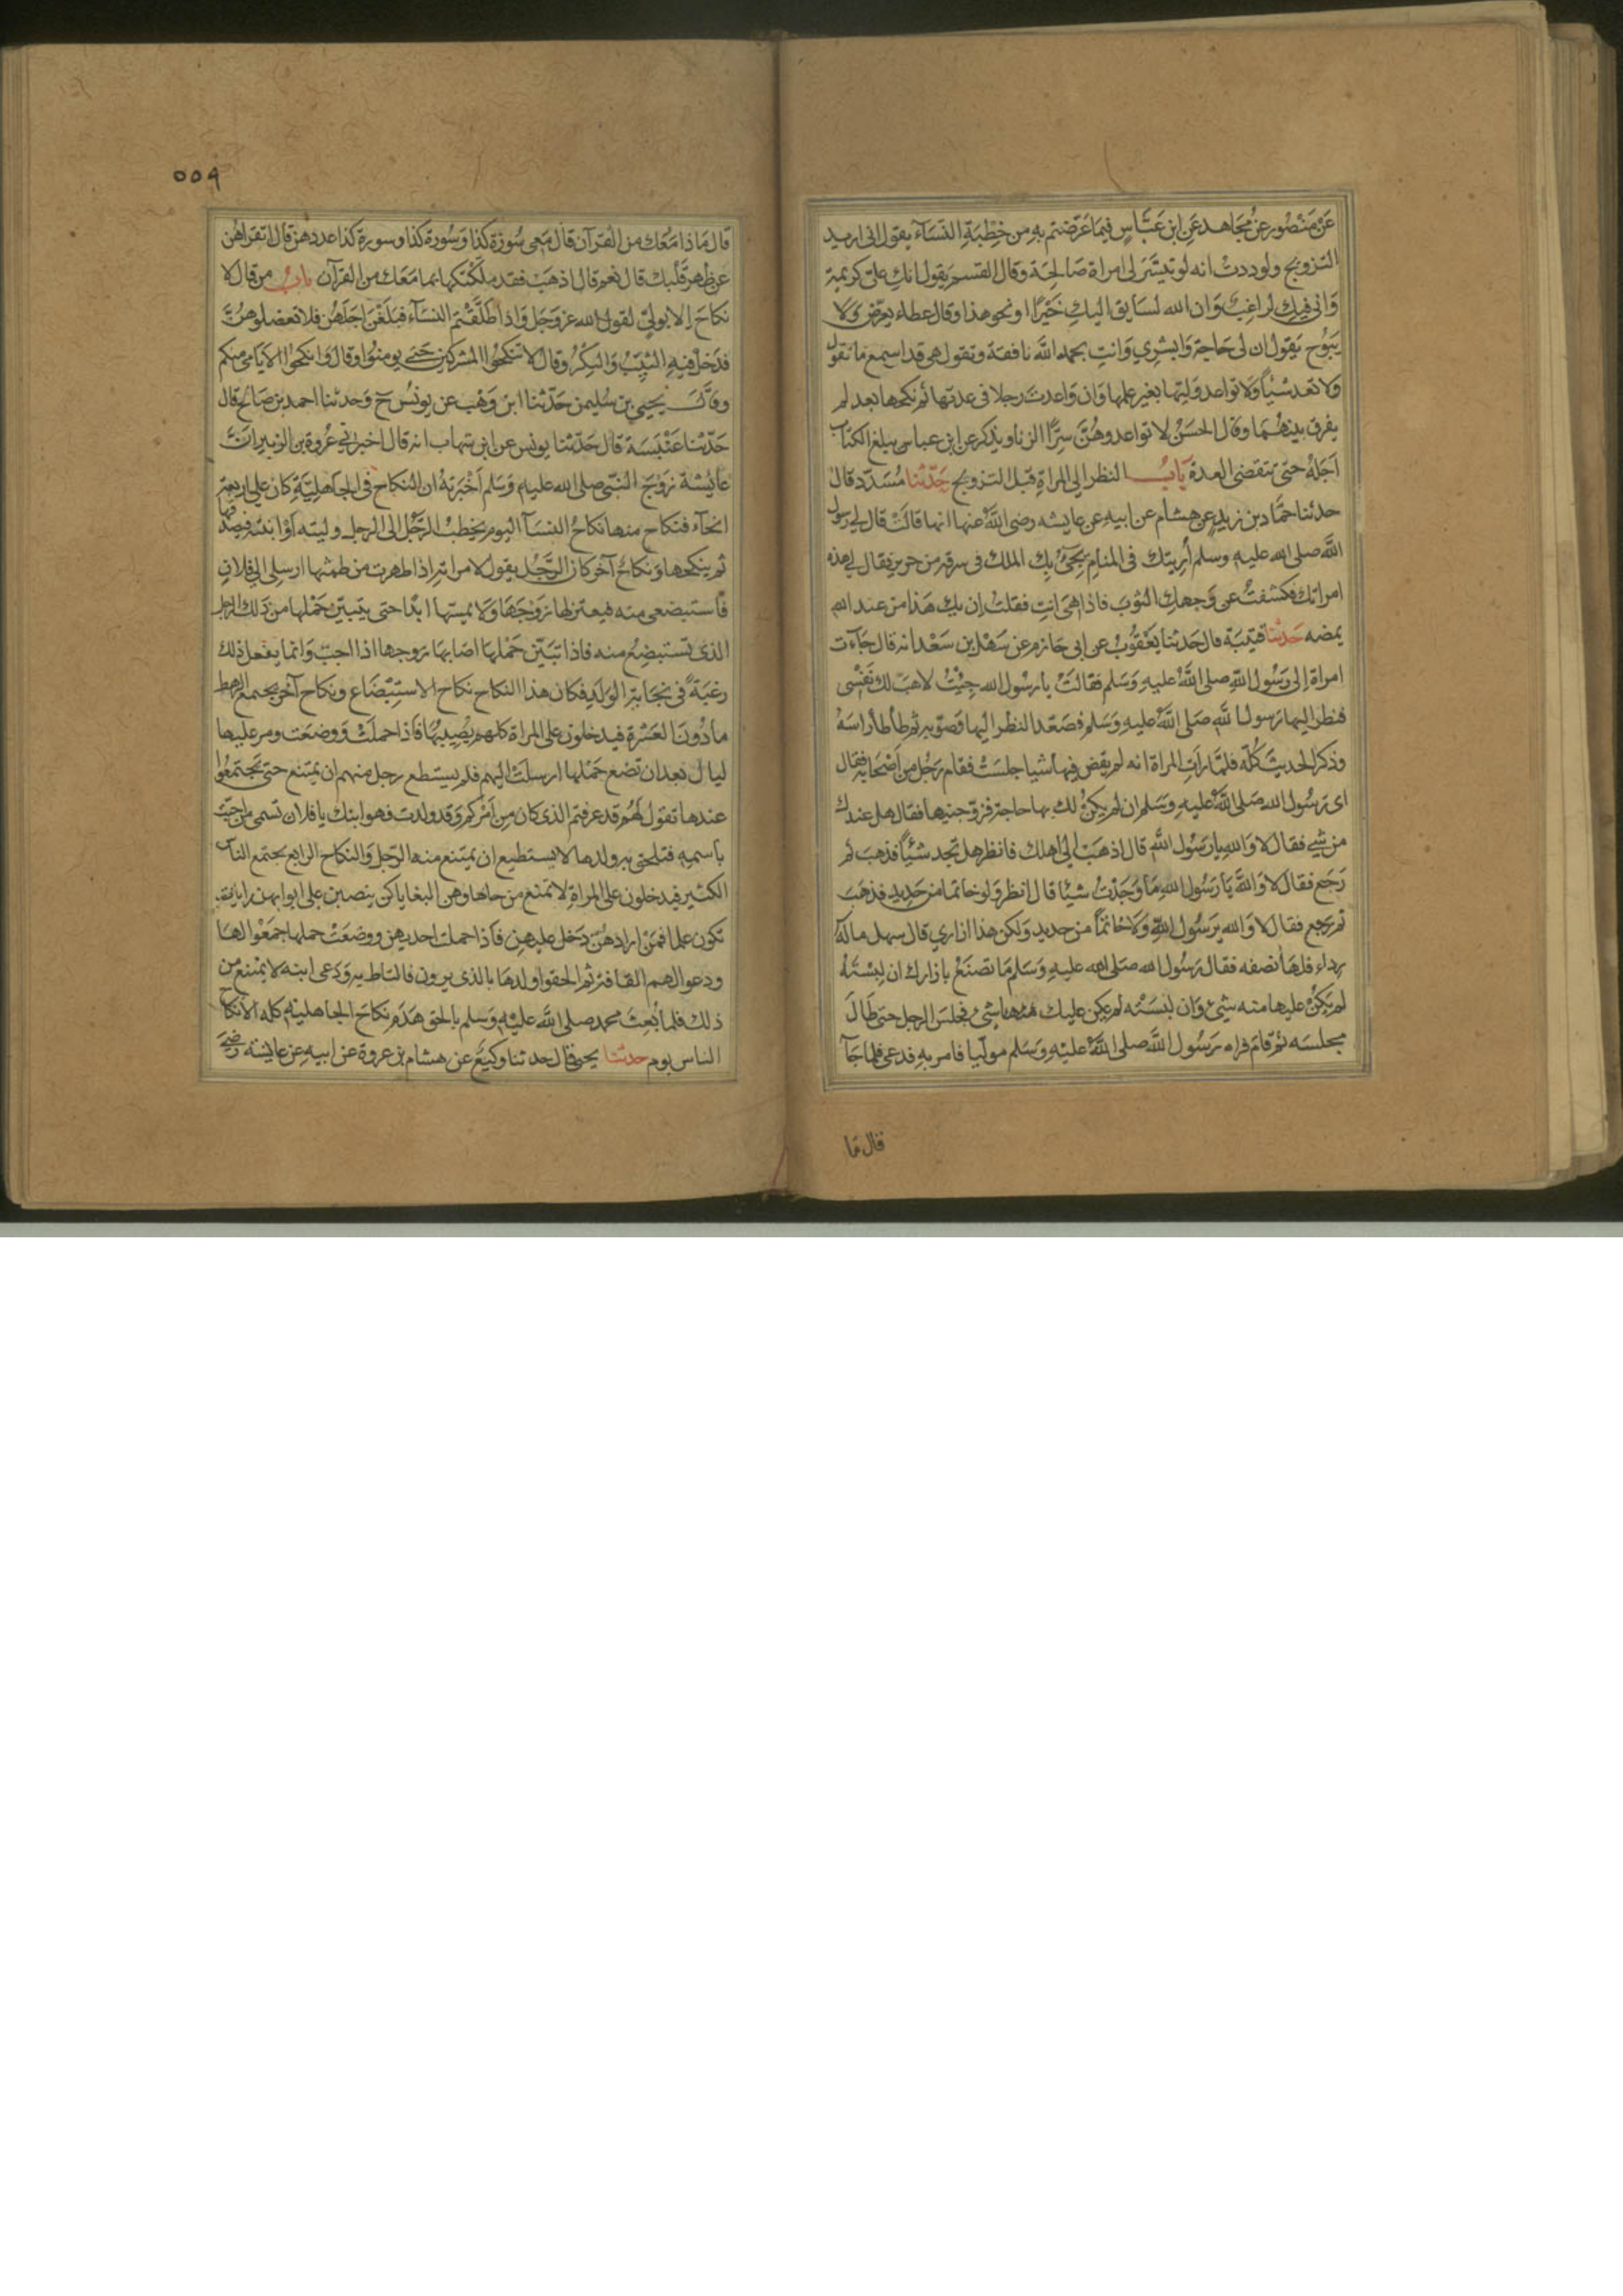 عَنْ مَنْصُورٍ عَنْ مُجَاهِد عَنِ ابْنِ عَبَّاسٍ فيمَا عَرَّضتم بِهِ مِن خِطْبَةِ النسَآء يقول انى اريد
التزويج ولوددت انه لو تيَسَّرَ لى امراة صَالِحَة وقال القسم يَقول انكِ على كريمة
وَانى فيكِ لراغِبٌ وَان الله لسَايق اليكِ خَيْرًا او نحو هذا وقال عطاء يعرّض وَلا
يَبُوح يَقول ان لى حَاجة وَابشِرِي وَانتِ بحمد الله نافقة وتقول هى قد اسمع مَا تقول
ولا تعد شيْأً وَلا تواعد وَليّها بغير علمها وَان وَاعدت رجلا فى عدتها ثم نكحها بعد لم
يفرق بينهُمَا وقال الحسَنْ لا تواعدوهُنَّ سِرًّا الزنا ويذكر عن ابن عباس يبلغ الكتاب
اَجَلهُ حتى تنقضى العدة بَابُ النظر الى المراةِ قبل التزويج حَدّثنا مُسَدّد قال
حدثنا حمَّاد بن زيد عن هشام عن ابيه عن عايشه رضى اللهُ عنها انها قالَتْ قال لى رسول
اللهِ صلى الله عليه وسلم اُريتك فى المنام يَجِىُٔ بِك الملك فى سرقة من حرير فقال لى هذه
امراتك فكشفتُ عن وَجهكِ الثوبَ فاذا هىَ انتِ فقلتُ ان يك هَذا من عند الله
يمضه حَدثنا قتيبَة قال حَدثنا يَعْقُوبْ عن ابى حَازم عن سَهْل بن سَعْد انه قال جَآءت
امراة الى رَسُول اللهِ صلى اللهُ عليهِ وَسَلم فقالَتْ يا رسُول الله جِئْتُ لاهَبَ لك نَفْسِى
فنظر اليها رَسول اللهِ صَلى اللهُ عليهِ وَسَلم فصَعّد النظر اليها وَصَوّبه ثم طأطأ راسَهُ
وذكر الحديثَ كُلّه فلمَّا رَاَتِ المراة انه لم يقض فيها شيا جلسَتْ فقام رَجُل مِن اَصْحَابِهِ فقال
اى رَسُول الله صَلى اللهُ عليهِ وَسَلم ان لم يكنْ لك بها حاجة فزوّجنيها فقال هل عندك
من شئ فقال لا وَاللهِ يا رَسُول اللهِ قال اذهَبْ الى اهلك فانظر هل تجد شئيًا فذهبَ ثم
رَجَع فقال لا وَاللهِ يَا رَسُول اللهِ مَا وَجَدْتُ شيئا قال انظر وَلو خاتما من حَديد فذهَبَ
ثم رجع فقال لا وَالله يرَسُول اللهِ وَلَا خاتمًا من حديد وَلكن هذا ازاري قال سهل ماله
رداء فلهَا نصفه فقال رَسُول الله صَلى الله عليهِ وَسَلم مَا تصنَعُ بازارك ان لبسْتَهُ
لم يَكنْ عليها منه شئ وَان لبسَتْه لم يكن عليك شئ فجلسَ الرجل حتى طَالَ
مجلسَه ثم قامَ فراه رَسُول اللهِ صلى اللهُ عليْهِ وَسَلم موليا فامر به فدعى فلما جَآ
قال مَا
٥٥٩
قال مَاذا مَعَك من القرآن قال مَعِى سُورَة كذا وَسُورة كذا وسورة كذا عددهن قال اتقراهُن
عن ظهر قَلْبك قال نعم قال اذهَبْ فقد مَلّكْتُكها بما مَعَك من القرآن بابُ من قال لا
نكاحَ الا بولىّ لقول الله عز وجَل وَاذا طَلّقْتم النسَآء فبَلَغْن اجَلَهُن فلا تعضلوهنّ
فدَخل فيهِ الثيِّبُ وَالبِكْرُ وقال لا تنكِحُوا المشركين حَتى يومنوا وقال وَانكحوا الايَامى منكم
وقال يحيي بن سُليمن حَدّثنا ابن وَهْب عن يونُس ح وَحدثنا احمد بن صَالح قال
حَدّثنا عَنْبَسَة قال حَدّثنا يونس عن ابن شهاب انه قال اخبرنى عُروة بن الزبير انّ
عايشة زَوْجَ النّبى صلى الله عليهِ وَسَلم اَخْبَرتهُ ان النكاح فى الجاهليّةِ كان على اربعة
انحآء فنكاح منها نكاحُ النسَآ اليوم يخطبُ الرّجُل الى الرجل وليته اَوْ ابنته فيصْدقها
ثم ينكحها وَنكاحٌ آخر كان الرّجُل يقول لامراته اذا طهرت من طمثها ارسلى الى فلانٍ
فاستبضعى منه فيعتزلها زَوْجهَا وَلا يمسّها ابدًا حتى يتبيّن حَمْلها من ذلك الرجل
الذى تستبضِعُ منه فاذا تبَيّن حَمْلها اصَابهَا زوجها اذا احبّ وَانما يفعل ذلك
رغبَةً فى نجابة الوَلَد فكان هذا النكاح نكاح الاستِبْضَاع ونكاح آخر يجتمع الرهط
مادُوْنَ العَشرة فيدخلون على المراة كلهم يُصِيبُهَا فَاذا حملَتْ وَوضعَت ومر عليها
ليال بَعد ان تضع حَمْلها ارسلَتْ اليهم فلم يستطع رجل منهم ان يمتنع حتى يجتمعُوا
عندها تقول لهُم قد عرفتم الذى كان مِن اَمْرِكُم وَقد ولدت فهو ابنك يا فلان تسمى من احبّتْ
باسمهِ فتلحق به ولدها لا يستطيع ان يمتنع منه الرّجل وَالنكاح الرابع يجتمع الناس
الكثير فيدخلون على المراةِ لا تمنع من جاءها وَهن البغايا كن ينصبن على ابوابهن رايات
تكون علما فمَنْ ارادهُنّ دَخل عليهن فَاذا حملت احديهن ووضعَتْ حملها جمعُوْا لهَا
ودعوا لهم القافة ثم الحقوا ولدها بالذى يرون فالتاط به وَدُعى ابنه لا يمتنع من
ذلك فلما بُعِثَ محمد صلى اللهُ عليْهِ وَسلم بالحق هَدَم نكاحَ الجاهليةِ كله الا نكاح
الناس يوم حدثنا يحيى قال حدثنا وكيعٌ عن هشام بن عروة عن ابيهِ عن عايشة رضى